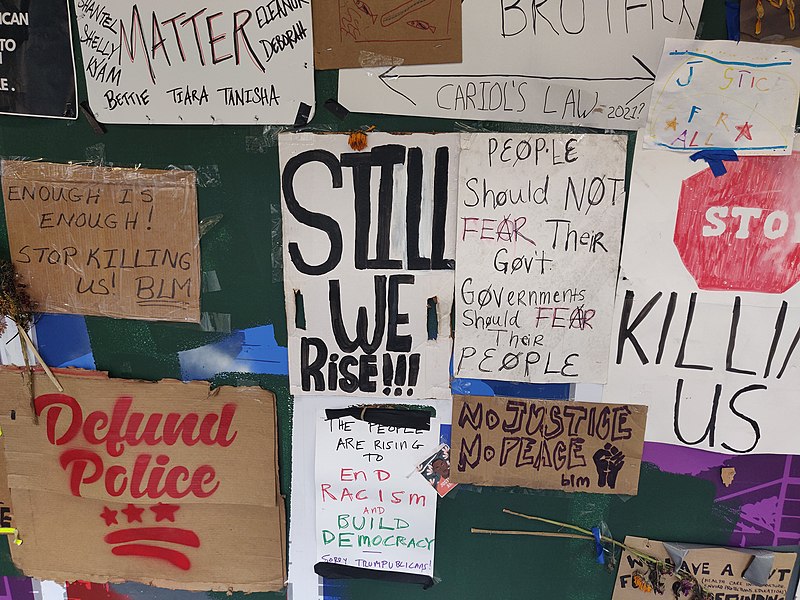 ICAN
TO
E.
SHANTEL
SHELLY
KYAM
MATTER
ELEANOR
DEBORAH
BETTIE TIARA TANISHA
CARIOL'S LAW - 2021?
J STIC
F R
ALL
ENOUGH IS
ENOUGH!
STOP KILLING
US! BLM
STILL
WE
RISE!!!
PEØPLE
Should NØT
FEAR Their
Gøv't.
GØvernments
Should FEAR
Their
PEØPLE
STO
KILLI
US
Defund
Police
THE PEOPLE
ARE RISING
TO
END
RACISM
AND
BUILD
DEMOCRACY
SORRY TRUMPUBLICANS!
NO JUSTICE
NO PEACE
blm